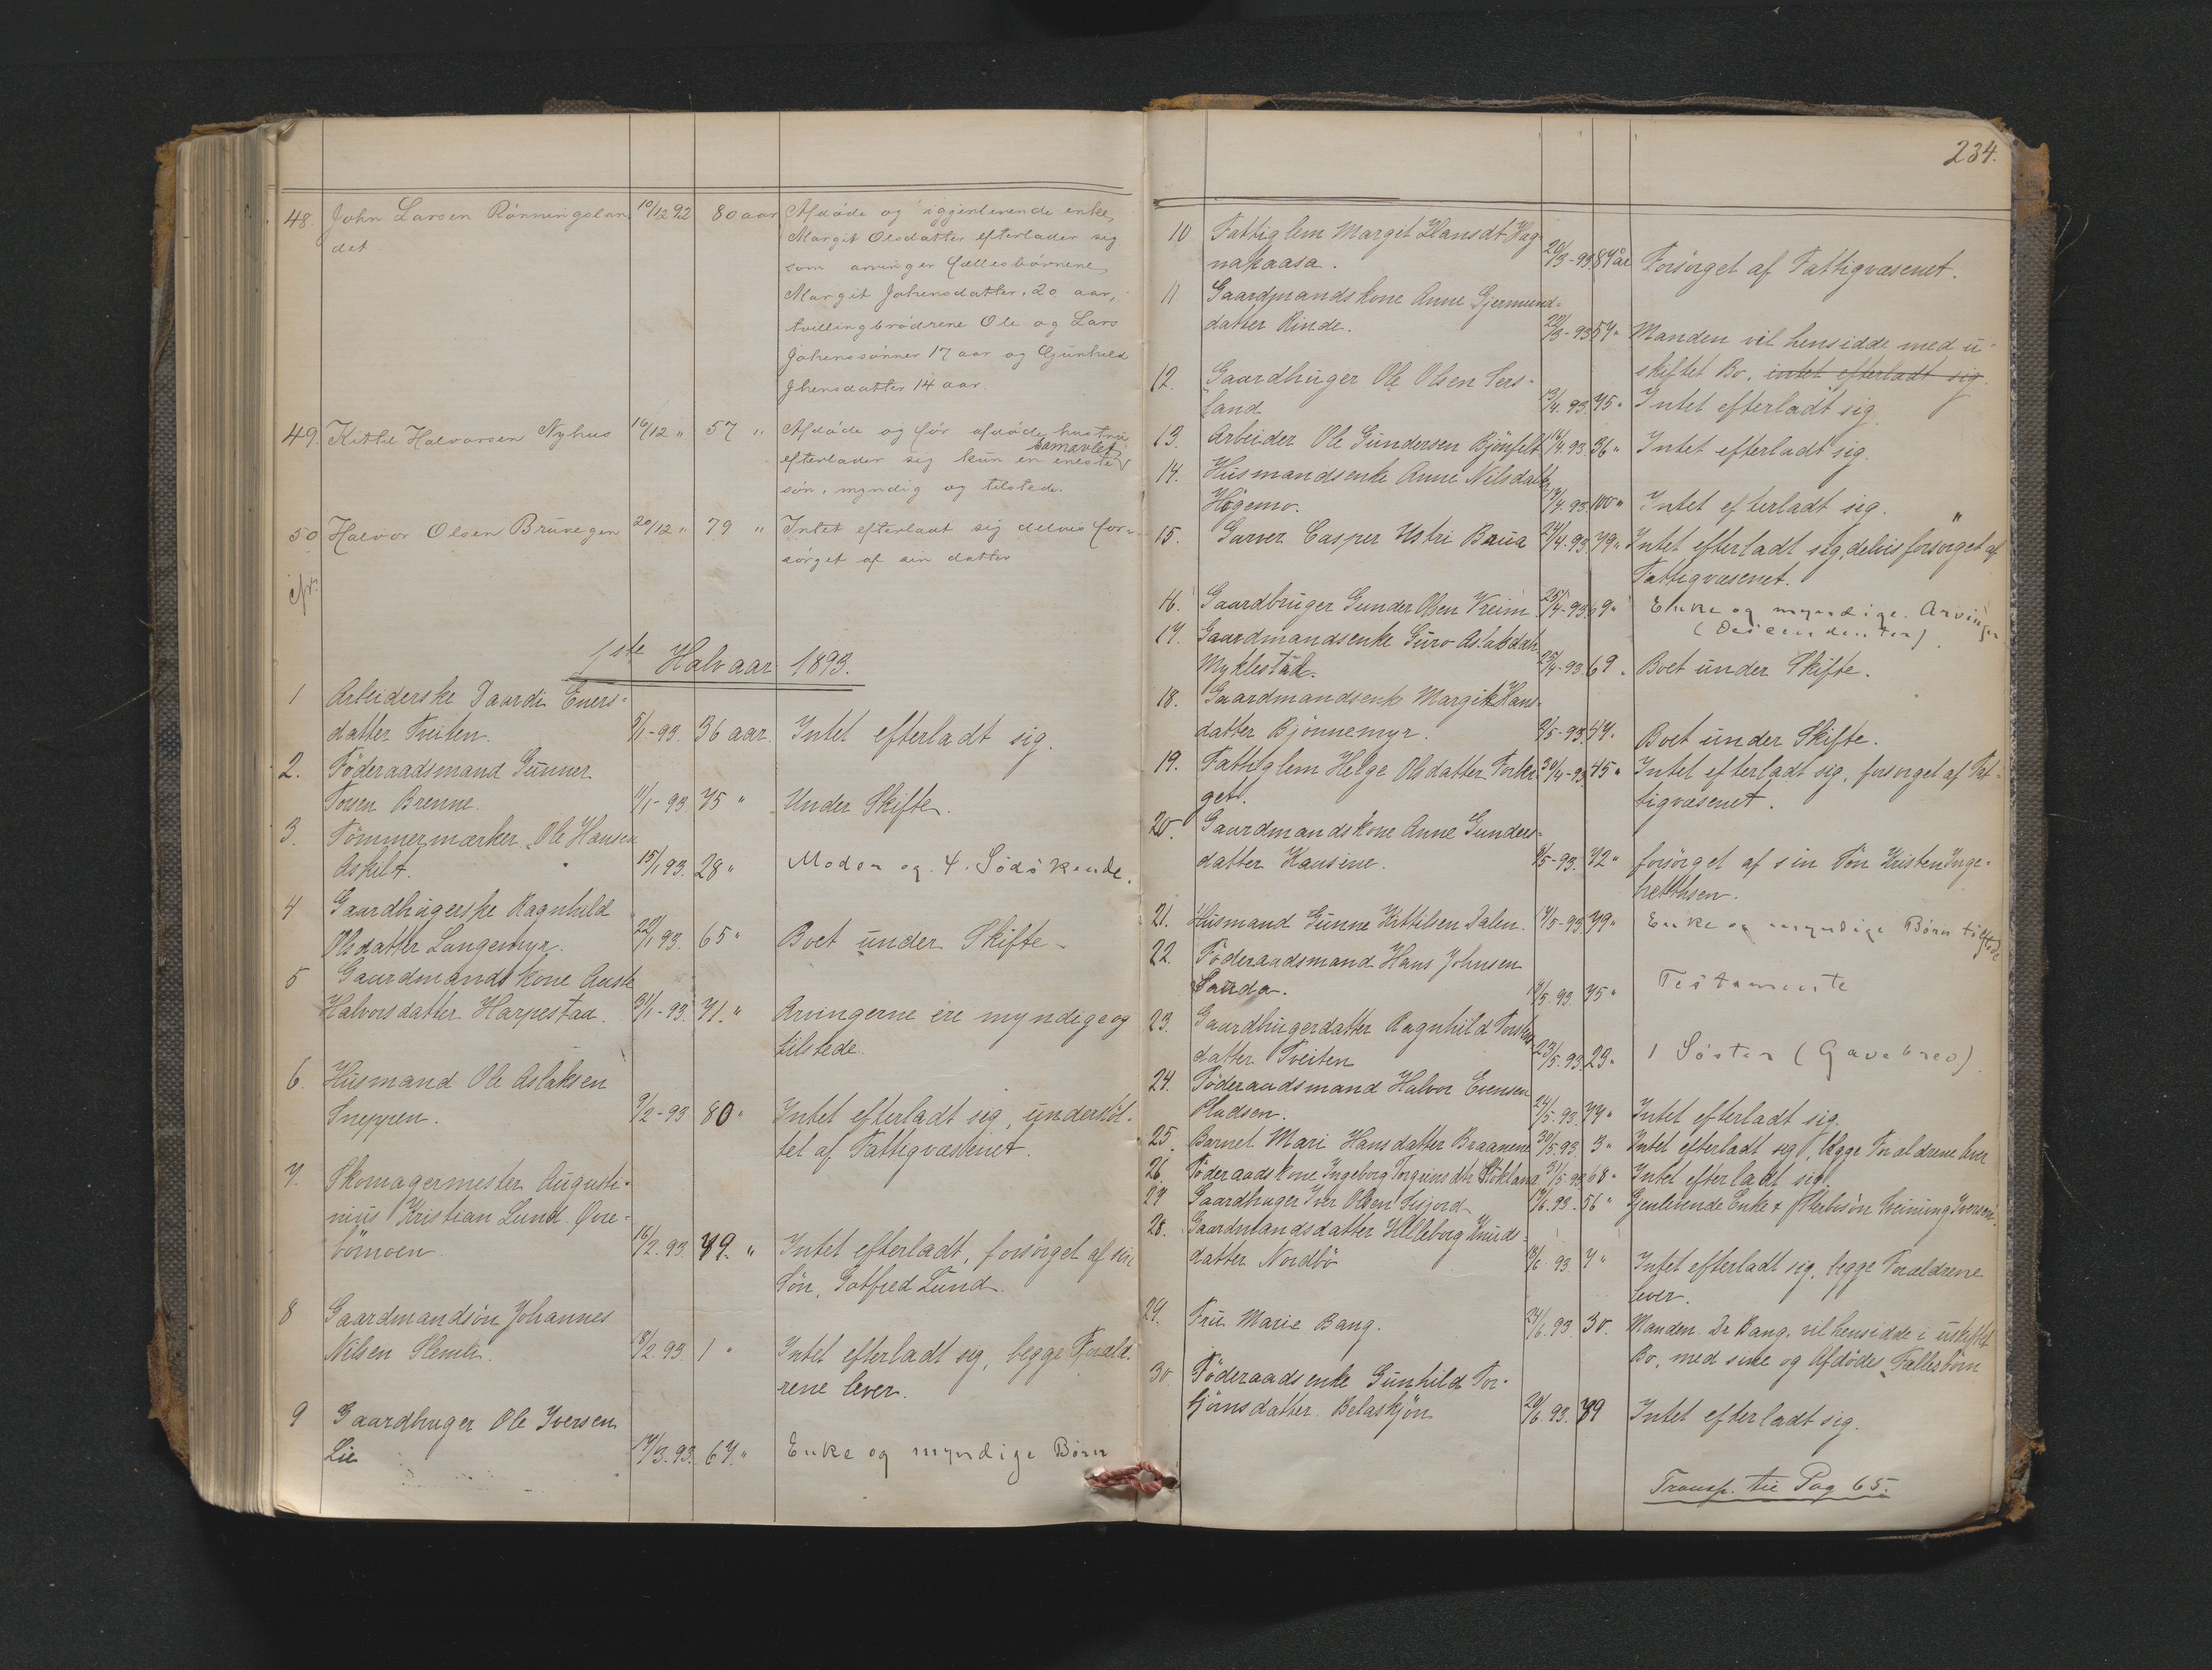 48. John Larsen Rönningslan 10/12 92 80 aar Afdöde og igjenlevende enke,
det Margit Olsdatter efterlader sig
som arvinger fællesbörnene
Margit Johensdatter, 20 aar,
tvillingbrödrene Ole og Lars
Johenssönner 17 aar og Gunhild
Jhensdatter 14 aar.
49. Kittil Halvorsen Nyhus 16/12 " 57 " Afdöde og för afdöde hustru
samavlet
efterlader sig kun en eneste
sön, myndig og tilstede.
50 Halvor Olsen Bruvegen 20/12 " 79 " Intet efterladt sig delvis for-
sörget af sin datter
1ste Halvaar 1893.
1 Arbeiderske Taardi Eivers-
datter Tveiten. 5/1-93. 36 aar. Intet efterladt sig.
2. Föderaadsmand Gunner
Torsen Brenne. 11/1-93 75 " Under Skifte.
3 Tömmermærker Ole Hansen
Askilt. 15/1 93. 28 " Moder og 4. Södskende.
4 Gaardbrugerske Ragnhild
Olsdatter Langemyr. 22/1 93. 65 " Boet under Skifte.
5 Gaardmandskone Aaste
Halvorsdatter Harpestad. 31/1-93. 71. " Arvingerne ere myndige og
tilstede.
6. Husmand Ole Aslaksen
Sneppen. 9/2-93 80 " Intet efterladt sig, understöt-
tet af Fattigvæsenet.
7. Skomagermester Augusti-
nius Kristian Lund. Övre-
börnoen 16/2.93. 79. " Intet efterladt, forsörget af sin
Sön, Gotfred Lund.
8 Gaardmandsön Johannes
Nilsen Slemli. 18/2.93. 1 " Intet efterladt sig, begge Foræld-
rene lever.
9 Gaardbruger Ole Iversen
Lie 17/3.93. 67. " Enke og myndige Börn
234.
10 Fattiglem Marget Hansdt Hag-
nakaasa. 20/3-93 84 år Forsörget af Fattigvæsenet.
11 Gaardmandskone Anne Gjermund-
datter Rinde. 22/3-93 54 " Manden vil hensidde med u-
skiftet Bo, intet efterladt sig.
12. Gaardbruger Ole Olsen Sers-
land 13/4.93. 75 " Intet efterladt sig
13. Arbeider Ole Gundersen Björnfelt 16/4.93. 36 " Intet efterladt sig.
14. Husmandsenke Anne Nilsdatter
Högemo. 17/4.93. 100 " Intet efterladt sig.
15. Garver Casper Ustri Brua 24/4.93. 79 " Intet efterladt sig, delvis forsörget af
Fattigvæsenet.
16. Gaardbruger Gunder Olsen Kreim 25/4-93. 69 " Enke og myndige Arvinger
(Descendenter)
17. Gaardmandsenke Guro Aslaksdatr
Myklestad. 25/4-93. 69. Boet under Skifte.
18. Gaardmandsenke Margit Hans-
datter Björnnemyr. 2/5-93. 47. Boet under Skifte.
19. Fattiglem Helge Olsdatter Torber 30/4-93. 45 " Intet efterladt sig, forsörget af Fat-
get. tigvæsenet.
20. Gaardmandskone Anne Gunders-
datter Kaasine. 9/5-93. 72 " forsörget af sin Sön Kristen Inge-
brethsen.
21. Husmand Gunne Kittilsen Dalen. 17/5-93. 79 " Enke og myndige Börn tilstede
22. Föderaadsmand Hans Johnsen
Sanda. 19/5.93 75 " Testamente
23. Gaardbrugerdatter Ragnhild Torsteins
datter Tveiten 23/5.93. 23 " 1 Söster (Gavebrev)
24. Föderaadsmand Halvor Evensen
Pladsen. 24/5.93. 77 " Intet efterladt sig.
25. Barnet Mari Hansdatter Braanene 30/5.93. 3 " Intet efterladt sig, begge Forældrene lever
26. Föderaadskone Ingeborg Torgrimsdtr Stokland 31/5.93 68 " Intet efterladt sig.
27 Gaardbruger Iver Olsen Sisjord 17/6.93. 56 " Gjenlevende Enke & Sterbsön Sveinung Iversen.
28. Gaardmandsdatter Hælleborg Knuds-
datter Nordbö 18/6 93. 7 " Intet efterladt sig, begge Forældrene
lever.
29. Fru Marie Bang. 24/6.93. 30. Manden Dr Bang, vil hensidde i uskiftet
Bo, med sine og Afdödes Fællesbörn
30 Föderaadsenke Gunhild Tor-
björnsdatter Belaskjön 20/6.93. 89 Intet efterladt sig.
Transp. til Pag 65.